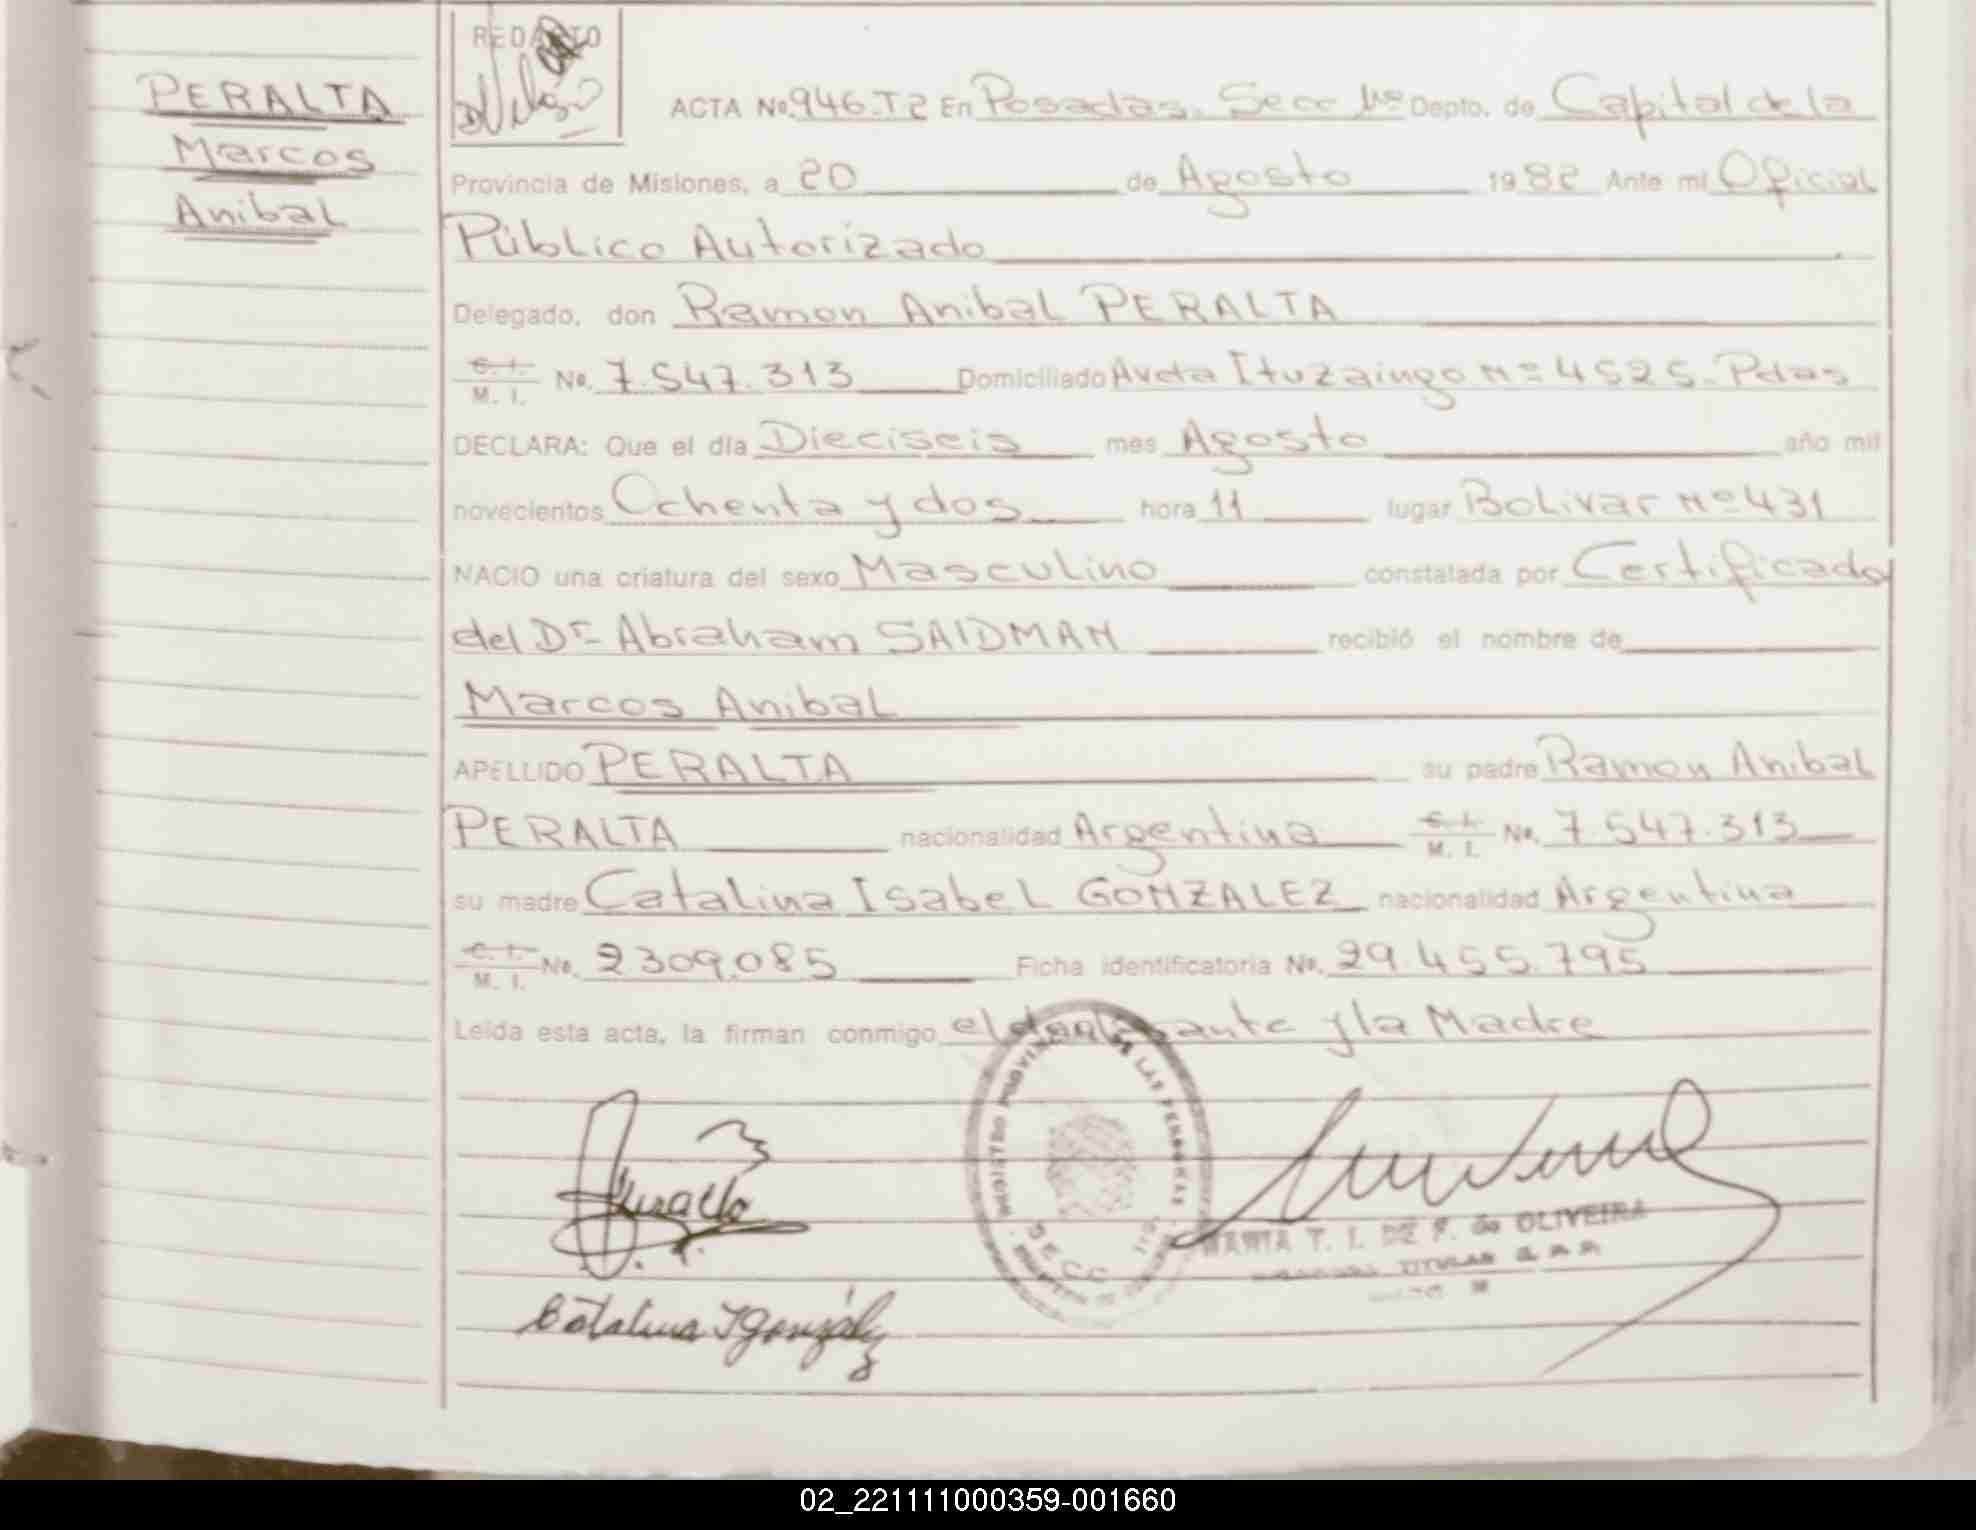 PERALTA
Marcos
Anibal
REDACTO
ACTA No. 946.T2 En Posadas. Secc 1ª Depto. de Capital de la
Provincia de Misiones, a 20 de Agosto 1982 Ante mi Oficial
Público Autorizado
Delegado, don Ramon Anibal PERALTA
C. I. M. I. No. 7.547.313 Domiciliado Avda Ituzaingo Nº 4525. Pdas
DECLARA: Que el día Dieciseis mes Agosto año mil
novecientos Ochenta y dos hora 11 lugar Bolivar Nº 431
NACIO una criatura del sexo Masculino constatada por Certificado
del Dr Abraham SAIDMAN recibió el nombre de
Marcos Anibal
APELLIDO PERALTA su padre Ramon Anibal
PERALTA nacionalidad Argentina C. I. M. I. No. 7.547.313
su madre Catalina Isabel GONZALEZ nacionalidad Argentina
C. I. M. I. No. 2309.085 Ficha identificatoria No. 29.455.795
Leida esta acta, la firman conmigo el y la Madre
REGISTRO PROVINCIAL DE LAS PERSONAS
SECC
MARIA T. I. DE F. de OLIVEIRA
TITULAR
Catalina I González
02_221111000359-001660